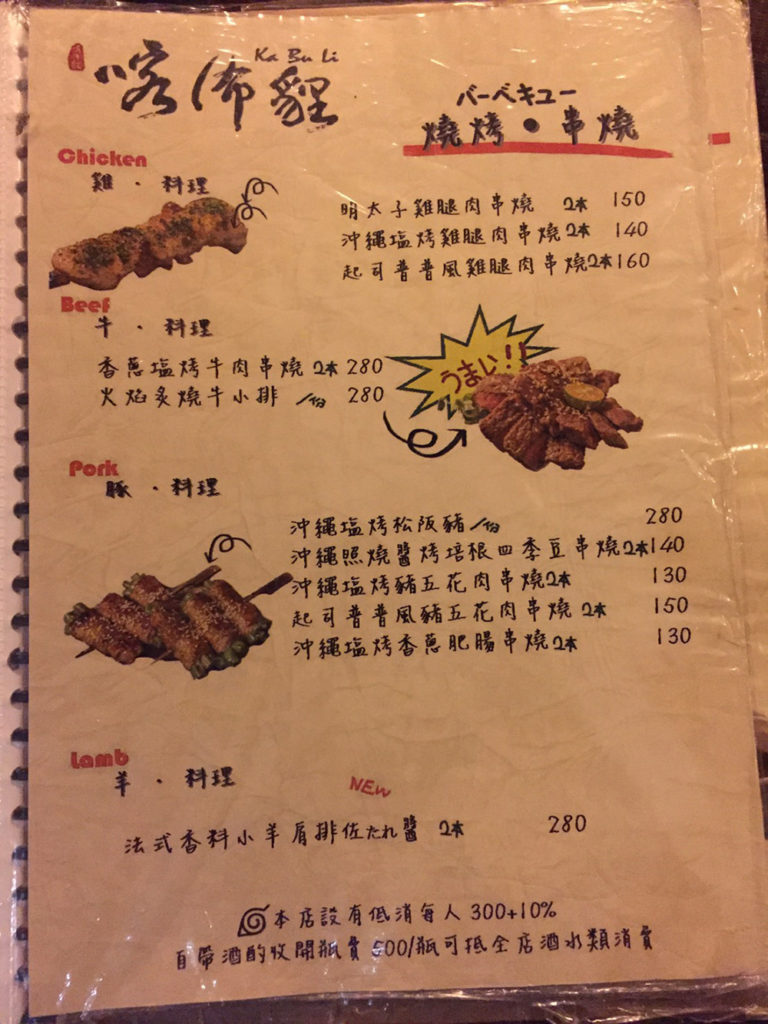 Ka Bu Li
喀佈貍
バーベキュー
燒烤・串燒
Chicken
雞・料理
明太子雞腿肉串燒 2本 150
沖繩塩烤雞腿肉串燒2本 140
起司普普風雞腿肉串燒2本160
Beef
牛・料理
香蔥塩烤牛肉串燒2本 280
火焰炙燒牛小排 /份 280
うまい!!
Pork
豚・料理
沖繩塩烤松阪豬/份 280
沖繩照燒醬烤培根四季豆串燒2本140
沖繩塩烤豬五花肉串燒2本 130
起司普普風豬五花肉串燒 2本 150
沖繩塩烤香蔥肥腸串燒2本 130
Lamb
羊・料理
NEW
法式香料小羊肩排佐たれ醬 2本 280
本店設有低消每人300+10%
自帶酒酌收開瓶費500/瓶可抵全店酒水類消費